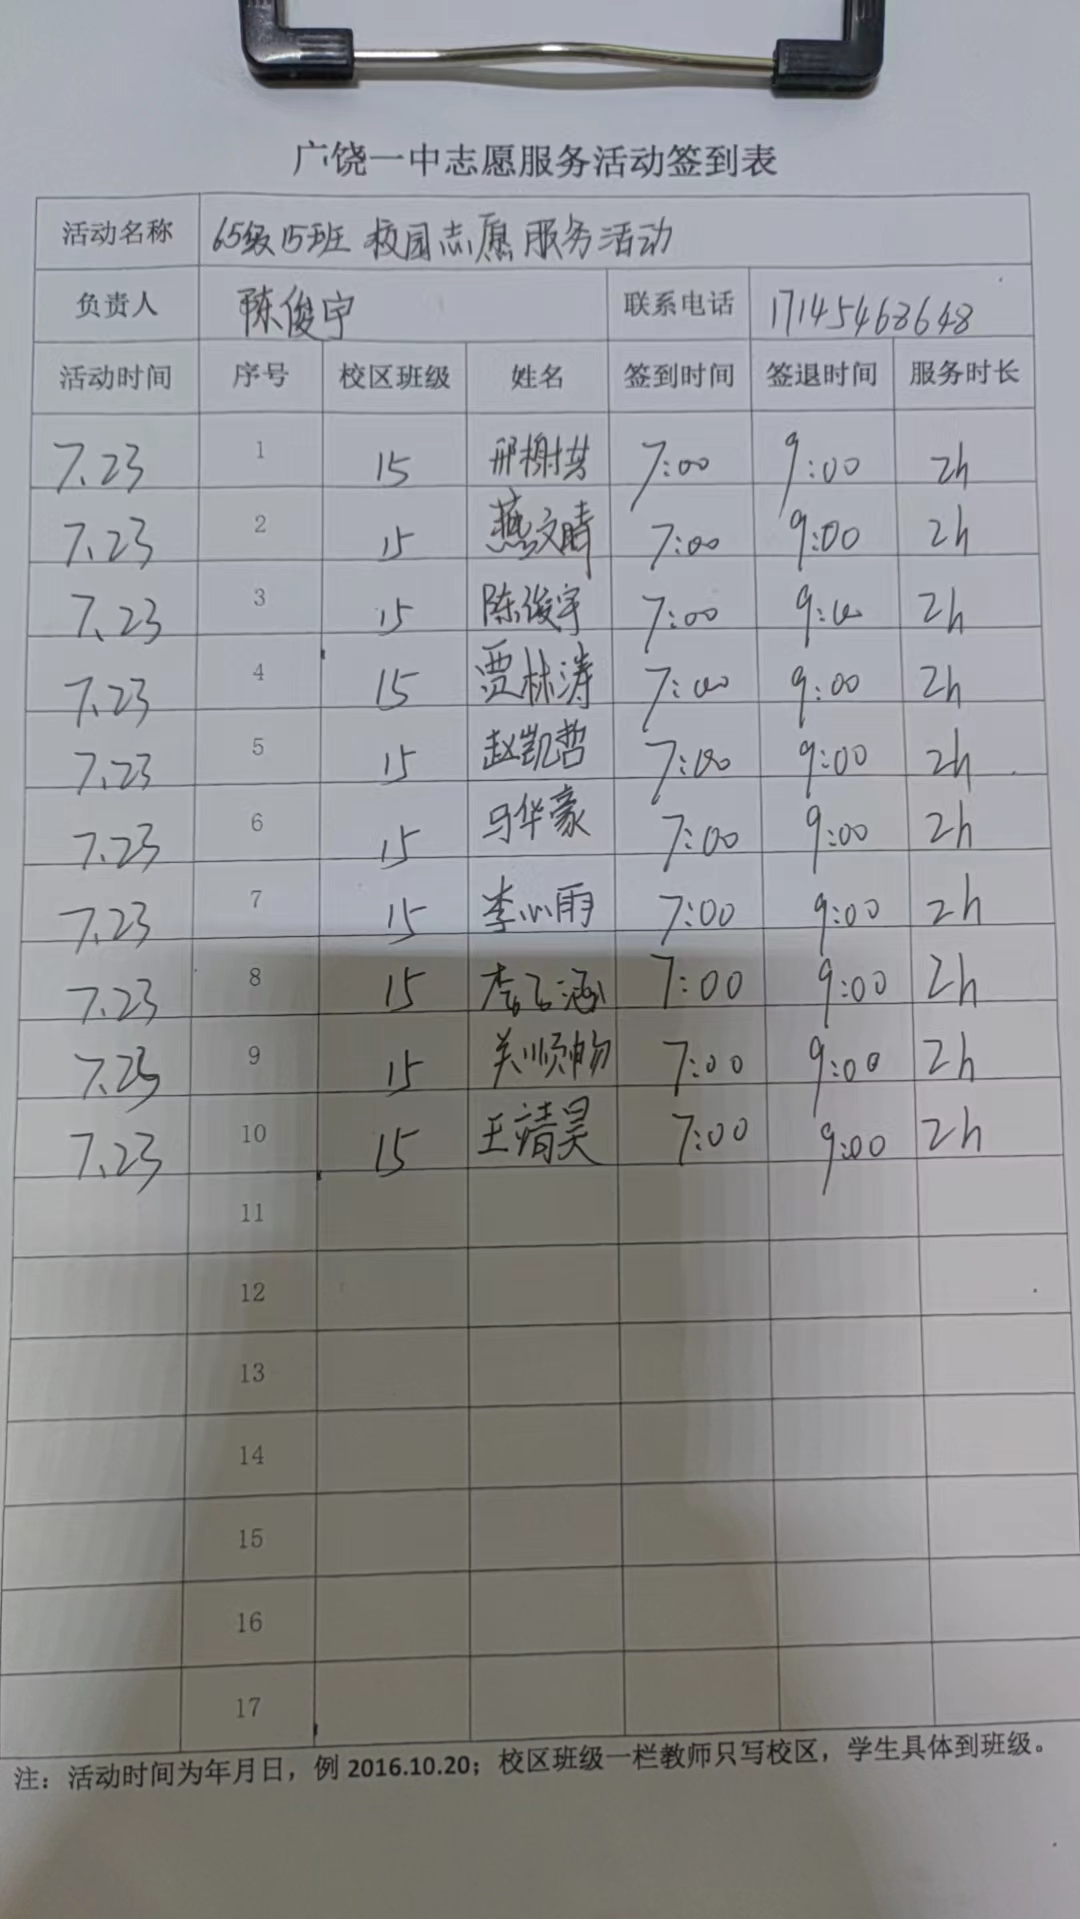 广饶一中志愿服务活动签到表
活动名称 65级15班 校园志愿服务活动
负责人 陈俊宇 联系电话 17145468648
活动时间 序号 校区班级 姓名 签到时间 签退时间 服务时长
7.23 1 15 邢榭其 7:00 9:00 2h
7.23 2 15 燕文晴 7:00 9:00 2h
7.23 3 15 陈俊宇 7:00 9:00 2h
7.23 4 15 贾林涛 7:00 9:00 2h
7.23 5 15 赵凯哲 7:00 9:00 2h
7.23 6 15 马华豪 7:00 9:00 2h
7.23 7 15 李心雨 7:00 9:00 2h
7.23 8 15 李 涵 7:00 9:00 2h
7.23 9 15 关顺畅 7:00 9:00 2h
7.23 10 15 王靖昊 7:00 9:00 2h
11
12
13
14
15
16
17
注：活动时间为年月日，例 2016.10.20；校区班级一栏教师只写校区，学生具体到班级。